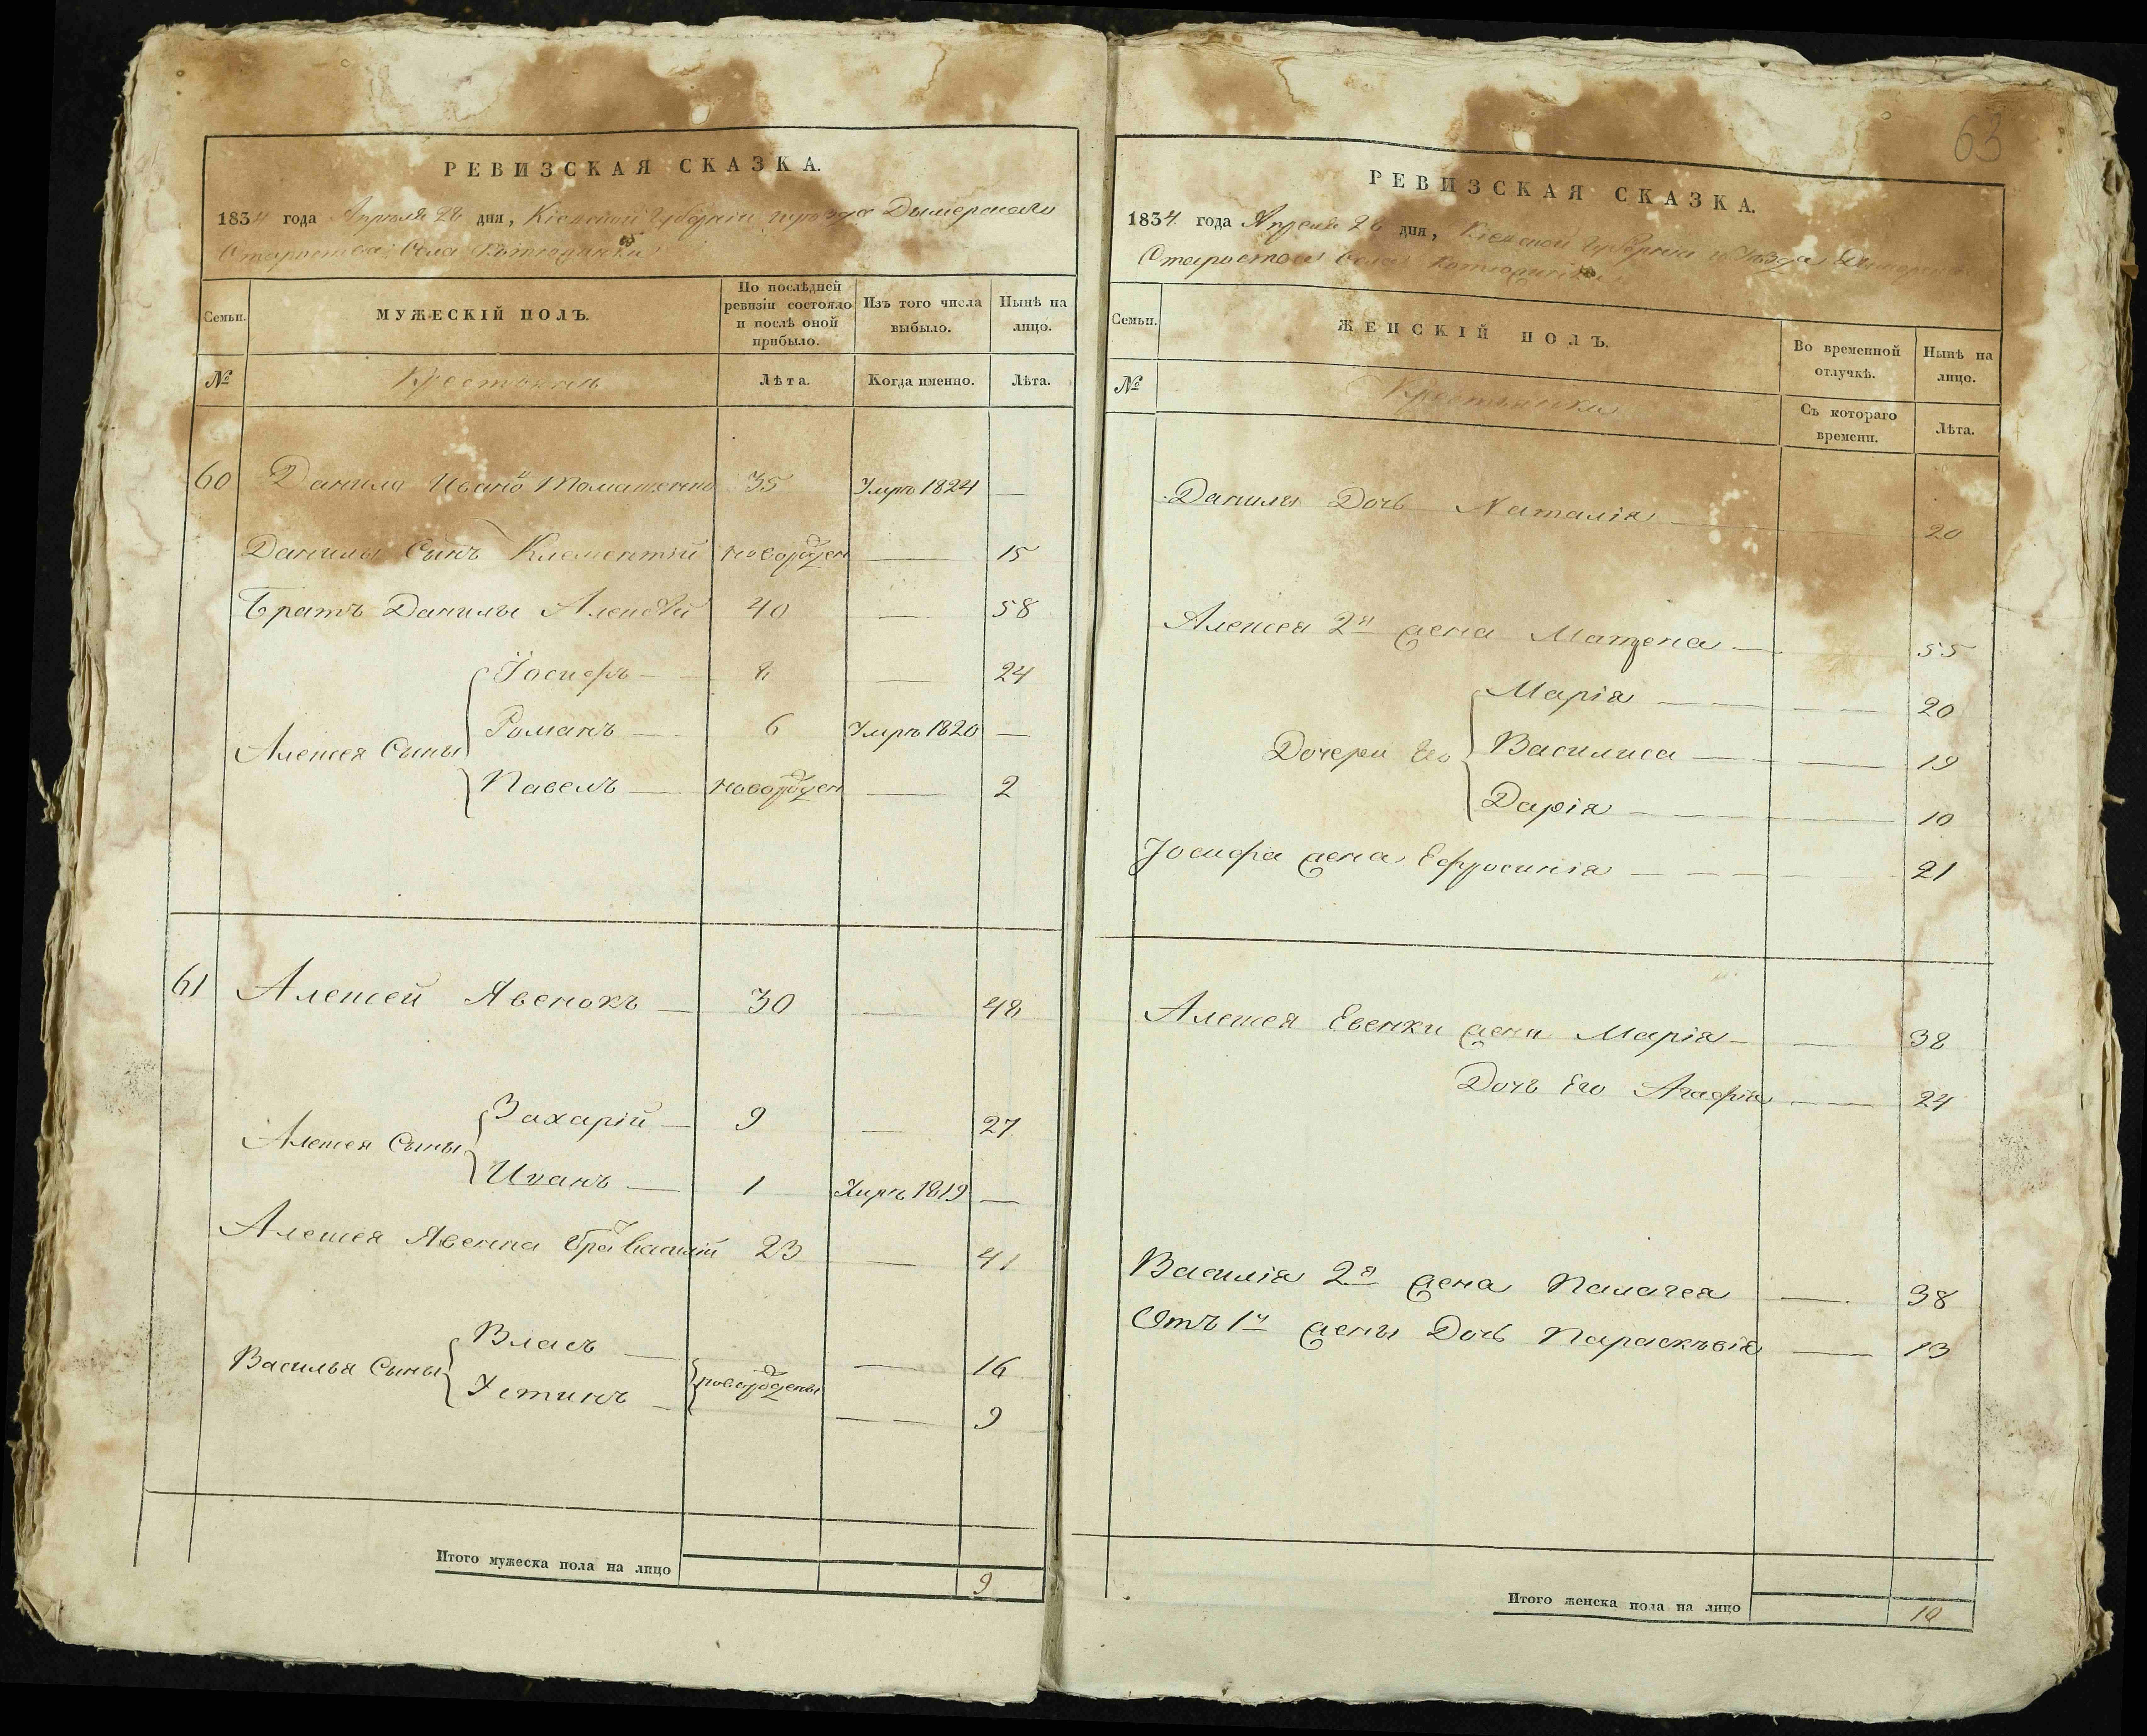 РЕВИЗСКАЯ СКАЗКА.
1834 года Апреля 28 дня, Кіевской Губерніи и уезда Дымерскаго
Староства Села
Семьи.
МУЖЕСКІЙ ПОЛЪ.
По послѣдней ревизіи состояло и послѣ оной прибыло.
Изъ того числа выбыло.
Нынѣ на лицо.
№
Крестьянъ
Лѣта.
Когда именно.
Лѣта.
60 Данило Ивано Томашенко 35 Умръ 1824 —
Данилы Сынъ Клементій новорожден — 15
Братъ Данилы Алексѣй 40 — 58
Алексея Сыны
Іосифъ — 8 — 24
Романъ — 6 Умръ 1820 —
Павелъ — новорожден — 2
61 Алексей Явенокъ — 30 — 48
Алексея Сыны
Захарій — 9 — 27
Иванъ — 1 Умръ 1819 —
Алексея Явенка бра Василій 23 — 41
Василья Сыны
Власъ — новорождены — 16
Устинъ — — 9
Итого мужеска пола на лицо 9
63
РЕВИЗСКАЯ СКАЗКА.
1834 года Апреля 28 дня, Кіевской Губерніи и Уезда
Староства Села
Семьи.
ЖЕНСКІЙ ПОЛЪ.
Во временной отлучкѣ.
Нынѣ на лицо.
№
Крестьянки
Съ котораго времени.
Лѣта.
Данилы Дочь Наталія — 20
Алексея 2я жена Матрена — 55
Дочери Его
Марія — 20
Василиса — 19
Дарія — 10
Іосифа жена Ефросинія — 21
Алексея Евенки жена Марія — 38
Дочь Его Агафія — 24
Василія 2я жена Палагея — 38
Отъ 1й жены Дочь Параскѣвія — 13
Итого женска пола на лицо 10